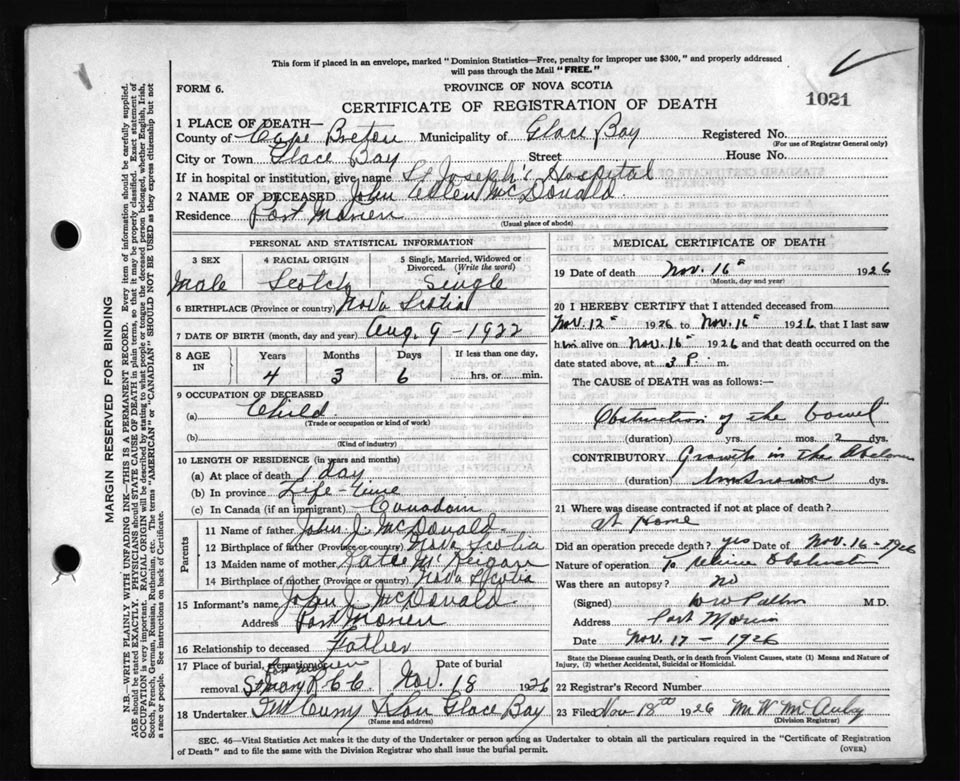 This form if placed in an envelope, marked "Dominion Statistics—Free, penalty for improper use $300," and properly addressed
will pass through the Mail "FREE."
FORM 6.
PROVINCE OF NOVA SCOTIA
CERTIFICATE OF REGISTRATION OF DEATH
1021
1 PLACE OF DEATH—
County of Cape Breton Municipality of Glace Bay Registered No.
(For use of Registrar General only)
City or Town Glace Bay Street House No.
If in hospital or institution, give name St Joseph's Hospital
2 NAME OF DECEASED John Allen McDonald
Residence Port Morien
(Usual place of abode)
PERSONAL AND STATISTICAL INFORMATION
3 SEX
4 RACIAL ORIGIN
5 Single, Married, Widowed or
Divorced. (Write the word)
Male Scotch Single
6 BIRTHPLACE (Province or country) Nova Scotia
7 DATE OF BIRTH (month, day and year) Aug. 9 - 1922
8 AGE
IN
Years Months Days If less than one day,
4 3 6 hrs. or min.
9 OCCUPATION OF DECEASED
(a) Child
(Trade or occupation or kind of work)
(b)
(Kind of industry)
10 LENGTH OF RESIDENCE (in years and months)
(a) At place of death 1 day
(b) In province Life-time
(c) In Canada (if an immigrant) Canadian
Parents
11 Name of father John J. McDonald
12 Birthplace of father (Province or country) Nova Scotia
13 Maiden name of mother Katie
14 Birthplace of mother (Province or country) Nova Scotia
15 Informant's name John J McDonald
Address Port Morien
16 Relationship to deceased Father
17 Place of burial, cremation or
removal Port Morien
St Mary R.C.C.
Date of burial
Nov. 18 1926
18 Undertaker & Son Glace Bay
(Name and address)
MEDICAL CERTIFICATE OF DEATH
19 Date of death Nov. 16th 1926
(Month, day and year)
20 I HEREBY CERTIFY that I attended deceased from
Nov. 12th 1926 to Nov. 16th 1926 that I last saw
him alive on Nov. 16th 1926 and that death occurred on the
date stated above, at 3 P. m.
The CAUSE of DEATH was as follows:
Obstruction of the bowel
(duration) yrs. mos. 2 dys.
CONTRIBUTORY Growth in the Abdomen
(duration) Unknown dys.
21 Where was disease contracted if not at place of death?
at Home
Did an operation precede death? yes Date of Nov. 16 - 1926
Nature of operation To relieve Obstruction
Was there an autopsy? no
(Signed) M D.
Address Port Morien
Date Nov. 17 - 1926
State the Disease causing Death, or in death from Violent Causes, state (1) Means and Nature of
Injury, (2) whether Accidental, Suicidal or Homicidal.
22 Registrar's Record Number
23 Filed Nov 18th 1926
(Division Registrar)
SEC. 46—Vital Statistics Act makes it the duty of the Undertaker or person acting as Undertaker to obtain all the particulars required in the "Certificate of Registration
of Death" and to file the same with the Division Registrar who shall issue the burial permit.
(OVER)
MARGIN RESERVED FOR BINDING
N.B.—WRITE PLAINLY WITH UNFADING INK—THIS IS A PERMANENT RECORD. Every item of information should be carefully supplied.
AGE should be stated EXACTLY. PHYSICIANS should STATE CAUSE OF DEATH in plain terms, so that it may be properly classified. Exact statement of
OCCUPATION is very important. RACIAL ORIGIN will be described by stating to what people or tongue the deceased person belonged, whether English, Irish,
Scotch, French, German, Russian, Ruthenian, etc. The terms "AMERICAN" or "CANADIAN" SHOULD NOT BE USED as they express citizenship but not
a race or people. See instructions on back of Certificate.